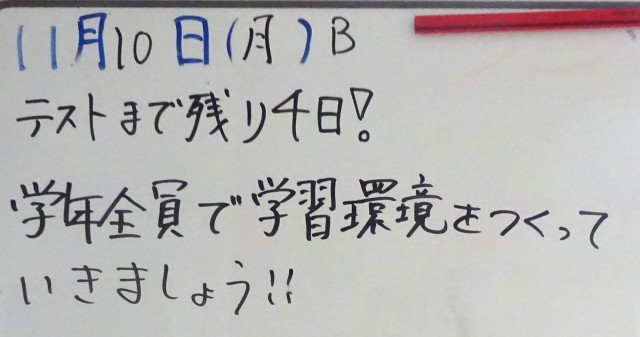 11月10日(月)B
テストまで残り4日!
学年全員で学習環境をつくって
いきましょう!!